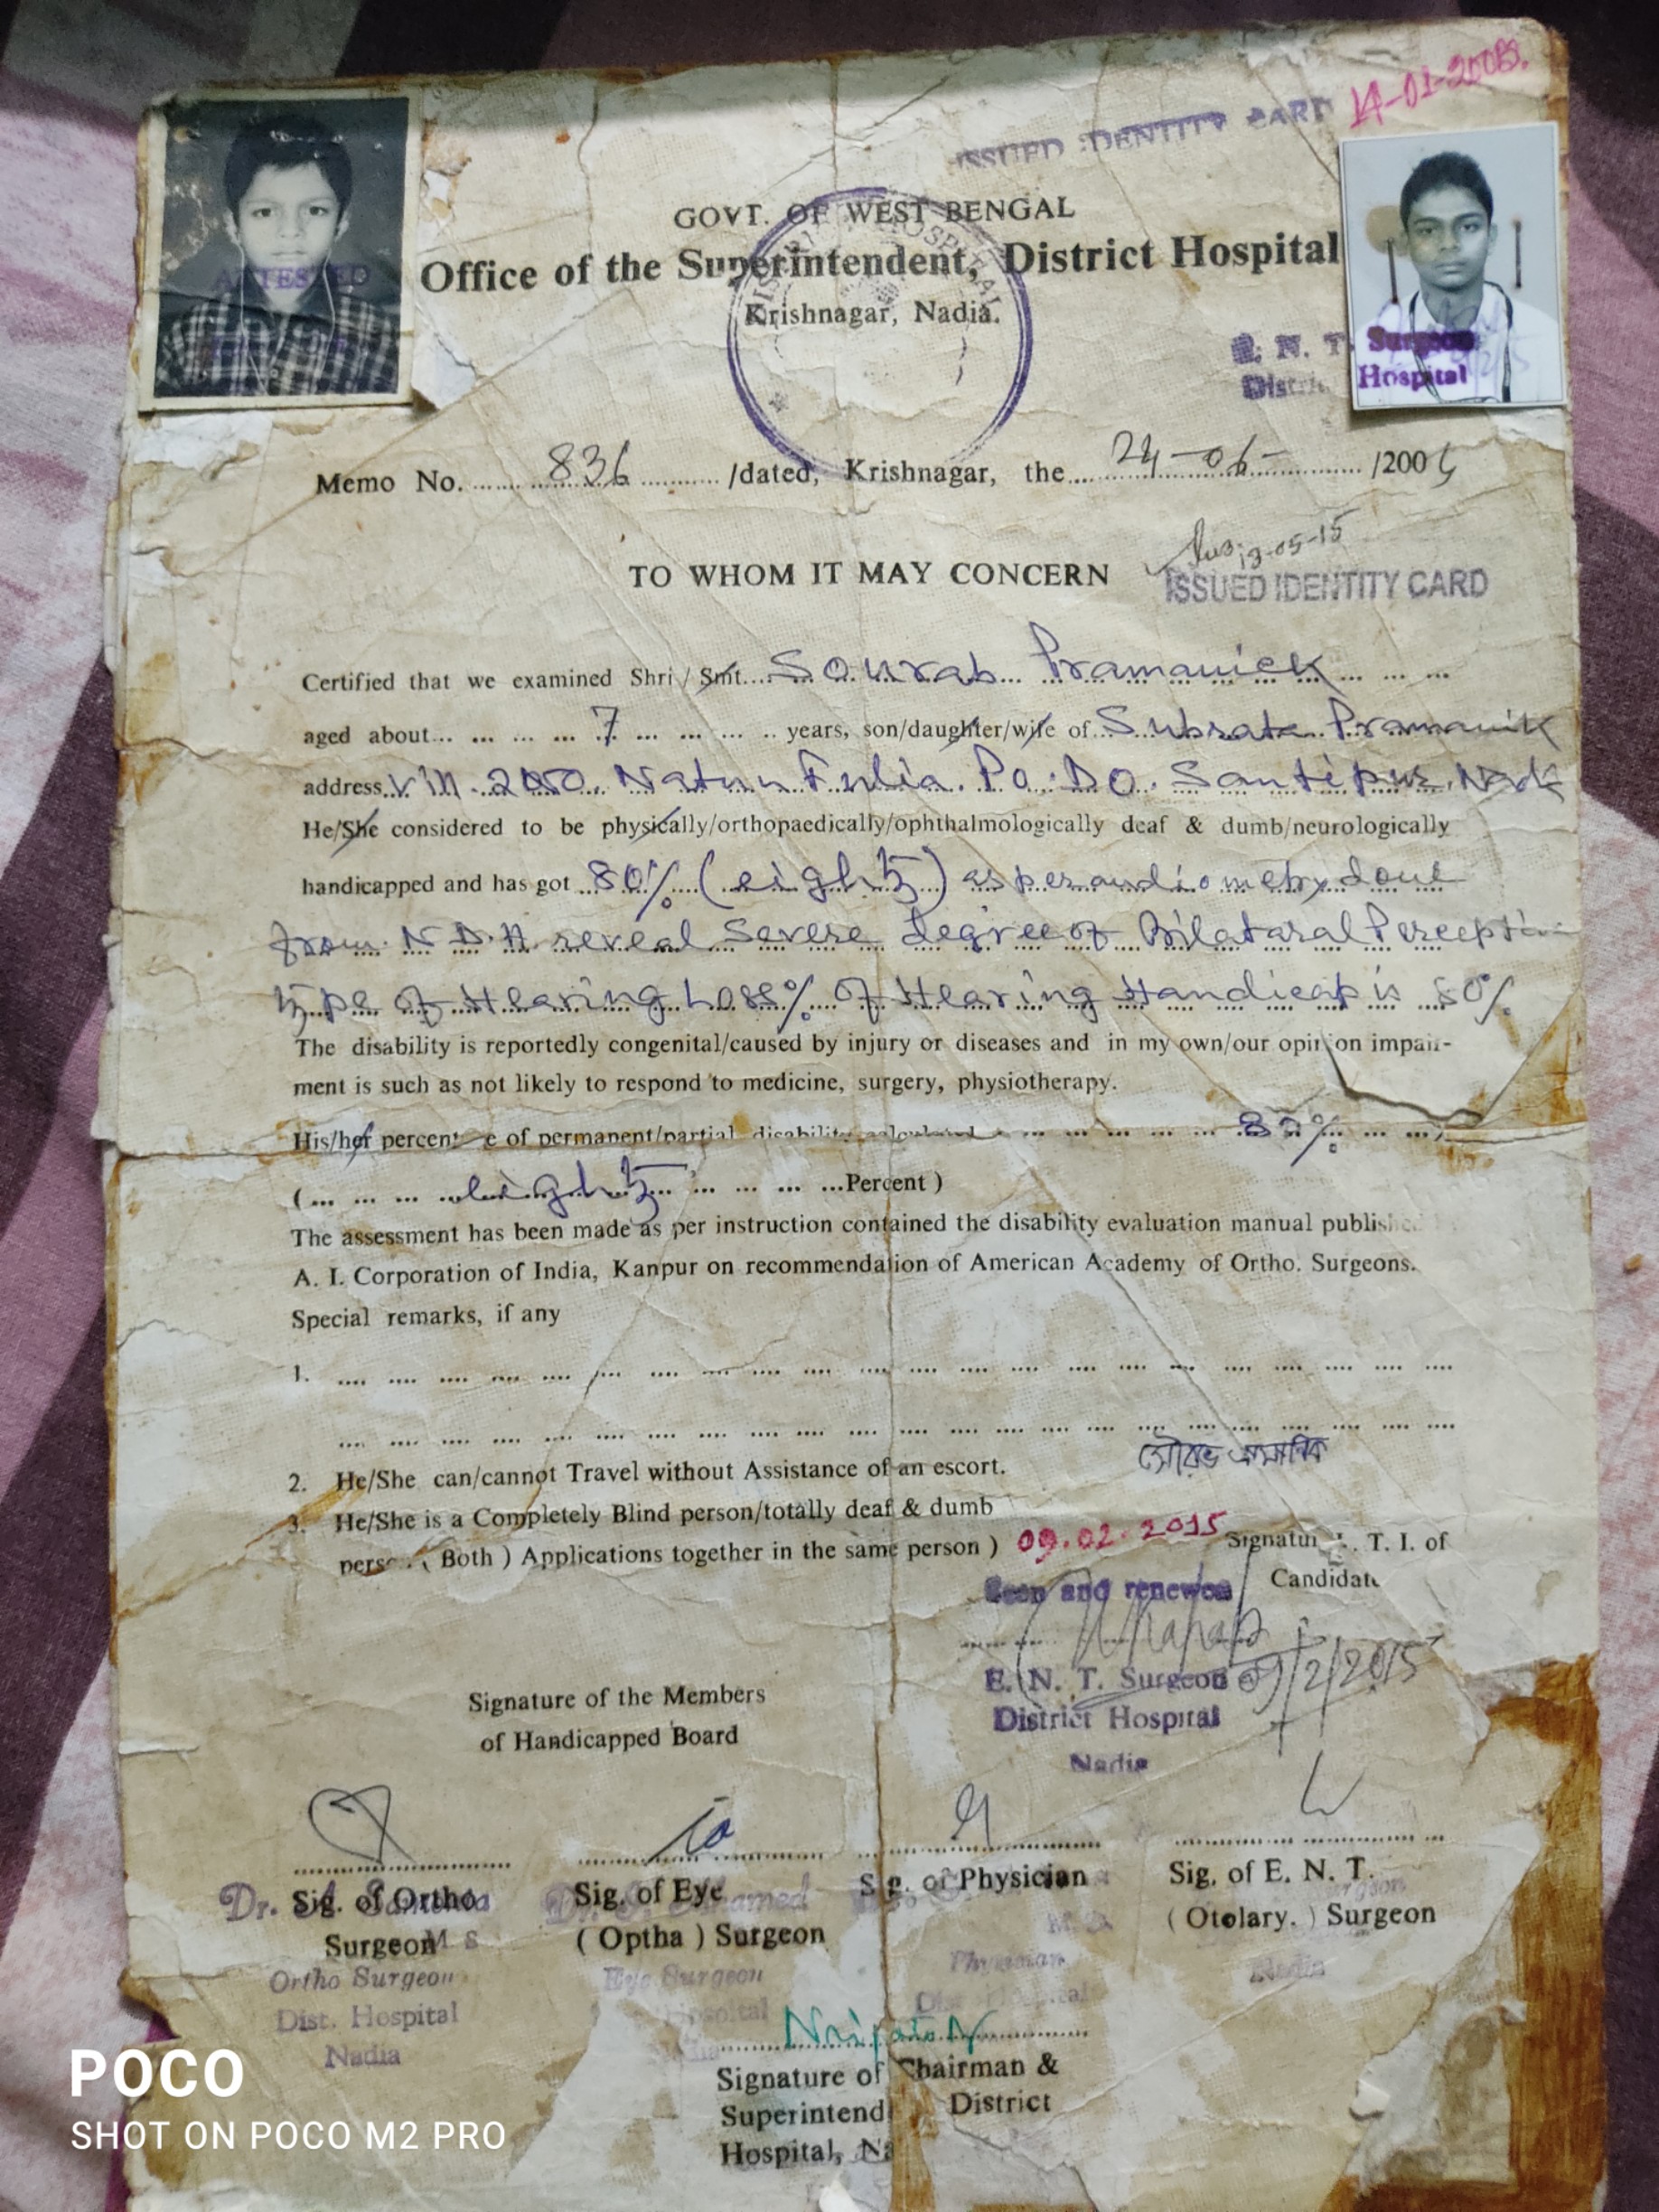 14-01-2008.
ISSUED IDENTITY CARD
GOVT. OF WEST BENGAL
Office of the Superintendent, District Hospital
Krishnagar, Nadia.
ATTESTED
E. N. T. Surgeon
District Hospital
Memo No. 836 /dated, Krishnagar, the 24-06- /200
13-05-15
TO WHOM IT MAY CONCERN
ISSUED IDENTITY CARD
Certified that we examined Shri / Smt. Sourab Pramanick
aged about 7 years, son/daughter/wife of Subrata Pramanik
address Vill. Natun Fulia. Po. Do. Santipur, Nadia
He/She considered to be physically/orthopaedically/ophthalmologically deaf & dumb/neurologically
handicapped and has got 80% (eighty) as per audiometry done
from N.D.H. reveal Severe degree of Bilataral Perception
type of Hearing Loss % of Hearing Handicap is 80%
The disability is reportedly congenital/caused by injury or diseases and in my own/our opinion impair-
ment is such as not likely to respond to medicine, surgery, physiotherapy.
His/her percentage of permanent/partial disability calculated 80%
( eighty Percent )
The assessment has been made as per instruction contained the disability evaluation manual published
A. I. Corporation of India, Kanpur on recommendation of American Academy of Ortho. Surgeons.
Special remarks, if any
1.
2. He/She can/cannot Travel without Assistance of an escort.
সৌরভ প্রামানিক
3. He/She is a Completely Blind person/totally deaf & dumb
person ( Both ) Applications together in the same person )
09.02.2015
Signature L. T. I. of
Candidate
Seen and renewed
9/2/2015
E. N. T. Surgeon
District Hospital
Nadia
Signature of the Members
of Handicapped Board
Sig. of Ortho
Surgeon
Sig. of Eye
( Optha ) Surgeon
Sig. of Physician
Sig. of E. N. T.
( Otolary. ) Surgeon
Dr.
M S
Ortho Surgeon
Dist. Hospital
Nadia
Eye Surgeon
Hospital
Physician
Nadia
Signature of Chairman &
Superintend District
Hospital, Na
POCO
SHOT ON POCO M2 PRO